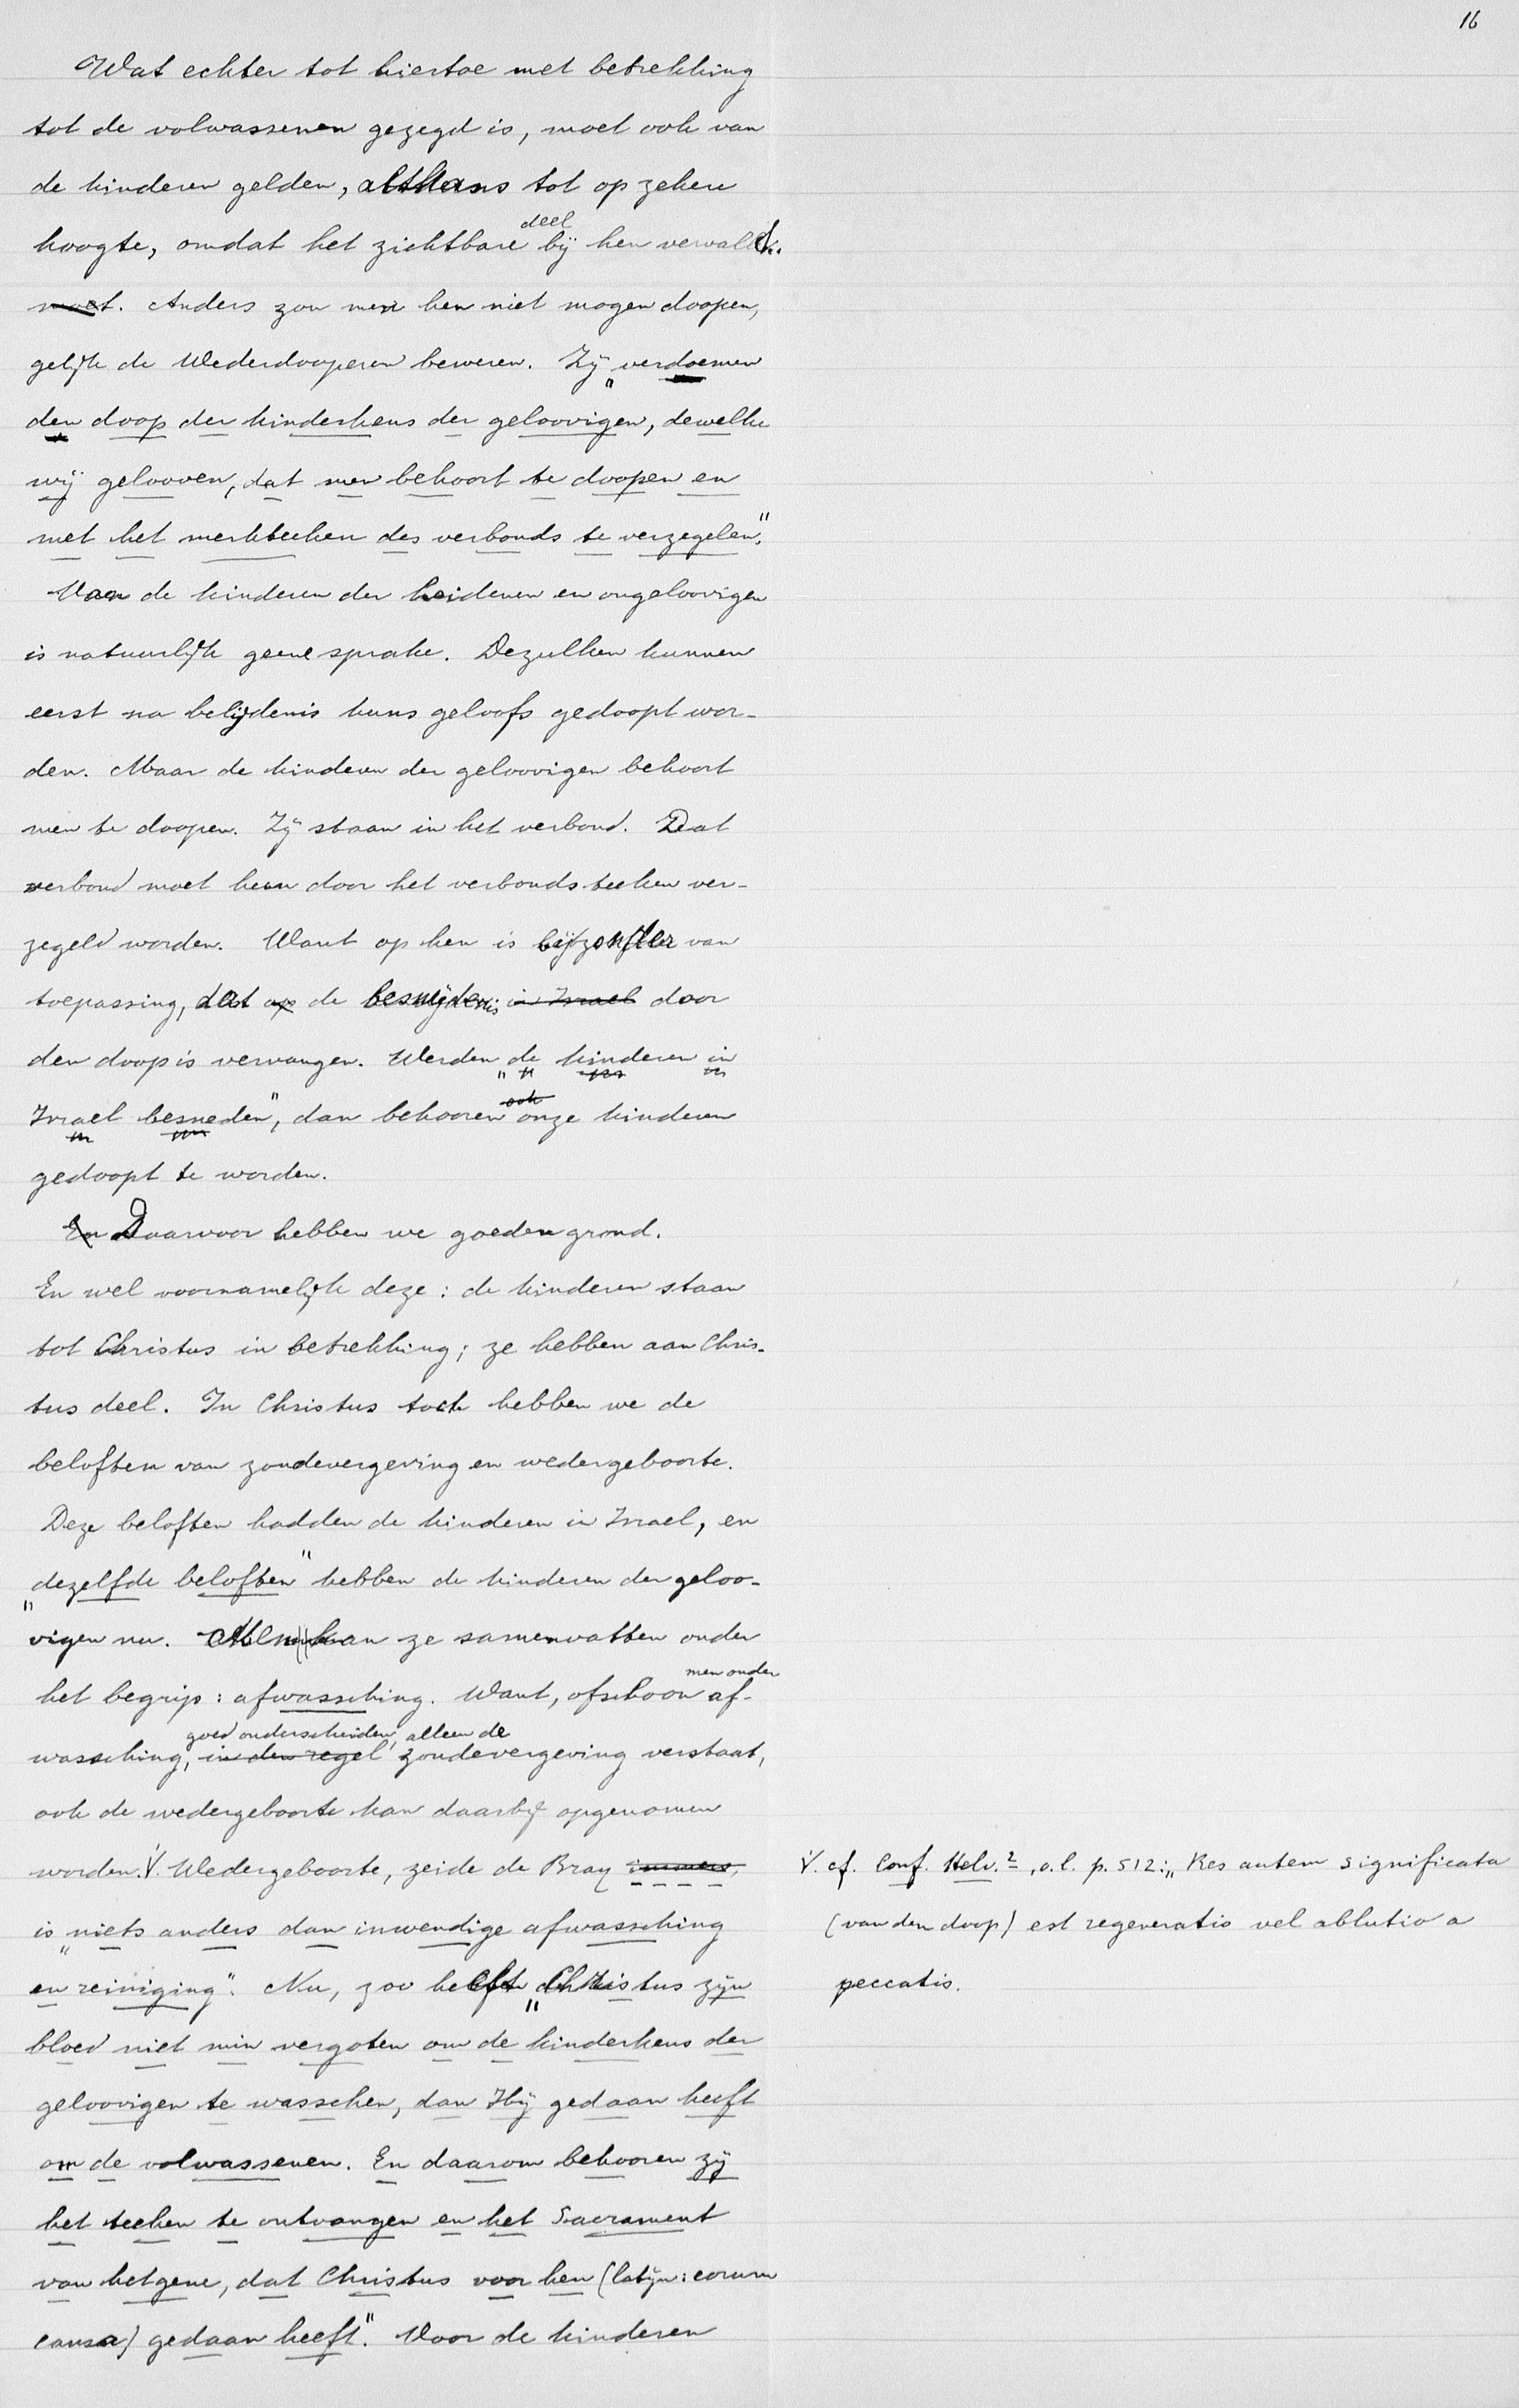 16
Wat echter tot hiertoe met betrekking
tot de volwassenen gezegd is, moet ook van
de kinderen gelden, althans tot op zekere
deel
hoogte, omdat het zichtbare bij hen vervalt.
moet. Anders zou men hen niet mogen doopen,
gelijk de Wederdooperen beweren. Zij „verdoemen
den doop der kinderkens der geloovigen, dewelke
wij gelooven, dat men behoort te doopen en
met het merkteeken des verbonds te verzegelen".
Van de kinderen der heidenen en ongeloovigen
is natuurlijk geene sprake. Dezulken kunnen
eerst na belijdenis huns geloofs gedoopt wor-
den. Maar de kinderen der geloovigen behoort
men te doopen. Zij staan in het verbond. Dat
verbond moet hen door het verbondsteeken ver-
zegeld worden. Want op hen is bijzonder van
toepassing, dat de besnijdenis in Israel door
den doop is vervangen. Werden „de kinderen in
ook
Israel besneden", dan behooren onze kinderen
gedoopt te worden.
En Daarvoor hebben we goeden grond.
En wel voornamelijk deze: de kinderen staan
tot Christus in betrekking; ze hebben aan Chris-
tus deel. In Christus toch hebben we de
beloften van zondevergeving en wedergeboorte.
Deze beloften hadden de kinderen in Israel, en
„dezelfde beloften" hebben de kinderen der geloo-
vigen nu. Men kan ze samenvatten onder
men onder
het begrip: afwassching. Want, ofschoon af-
goed onderscheiden, alleen de
wassching, in den regel zondevergeving verstaat,
ook de wedergeboorte kan daarbij opgenomen
worden. V. Wedergeboorte, zeide de Bray immers,
is „niets anders dan inwendige afwassching
en reiniging". Nu, zoo heeft „Christus zijn
bloed niet min vergoten om de kinderkens der
geloovigen te wasschen, dan Hij gedaan heeft
om de volwassenen. En daarom behooren zij
het teeken te ontvangen en het Sacrament
van hetgene, dat Christus voor hen (latijn: eorum
causa) gedaan heeft". Voor de kinderen
V. cf. Conf. Helv. 2, o.l. p. 512: „Res autem significata
(van den doop) est regeneratio vel ablutio a
peccatis.